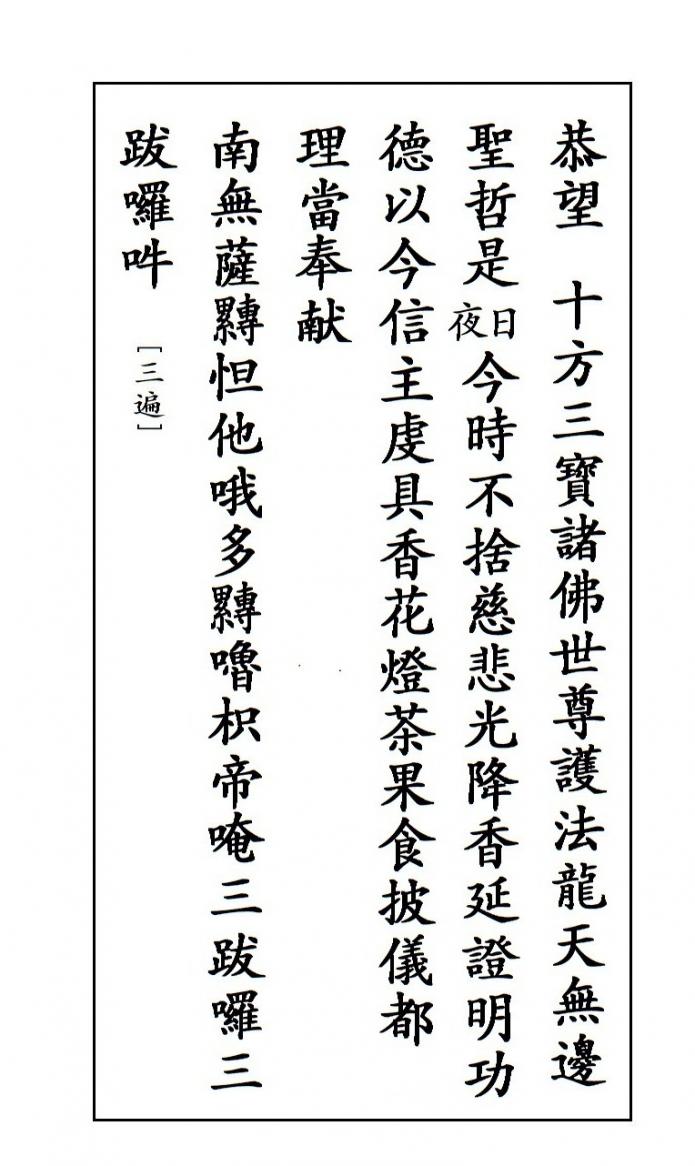 恭望　十方三寶諸佛世尊護法龍天無邊
聖哲是日夜今時不捨慈悲光降香延證明功
德以今信主虔具香花燈茶果食披儀都
理當奉献
南無薩嚩怛他哦多嚩嚕枳帝唵三跋囉三
跋囉吽 [三遍]